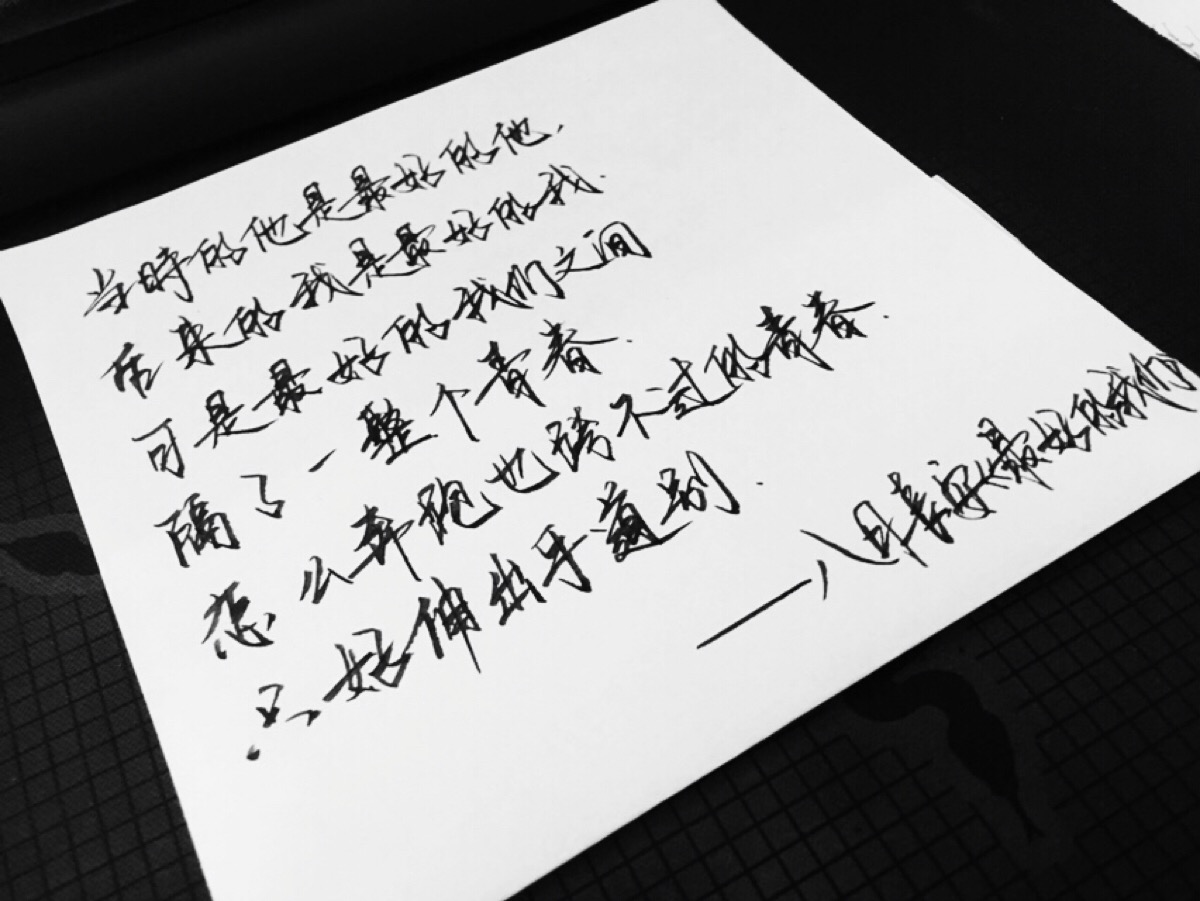 当時的他是最好的他.
后来的我是最好的我.
可是最好的我们之间
隔了一整个青春.
怎么奔跑也跨不过的青春.
只好伸出手道别.
——八月长安《最好的我们